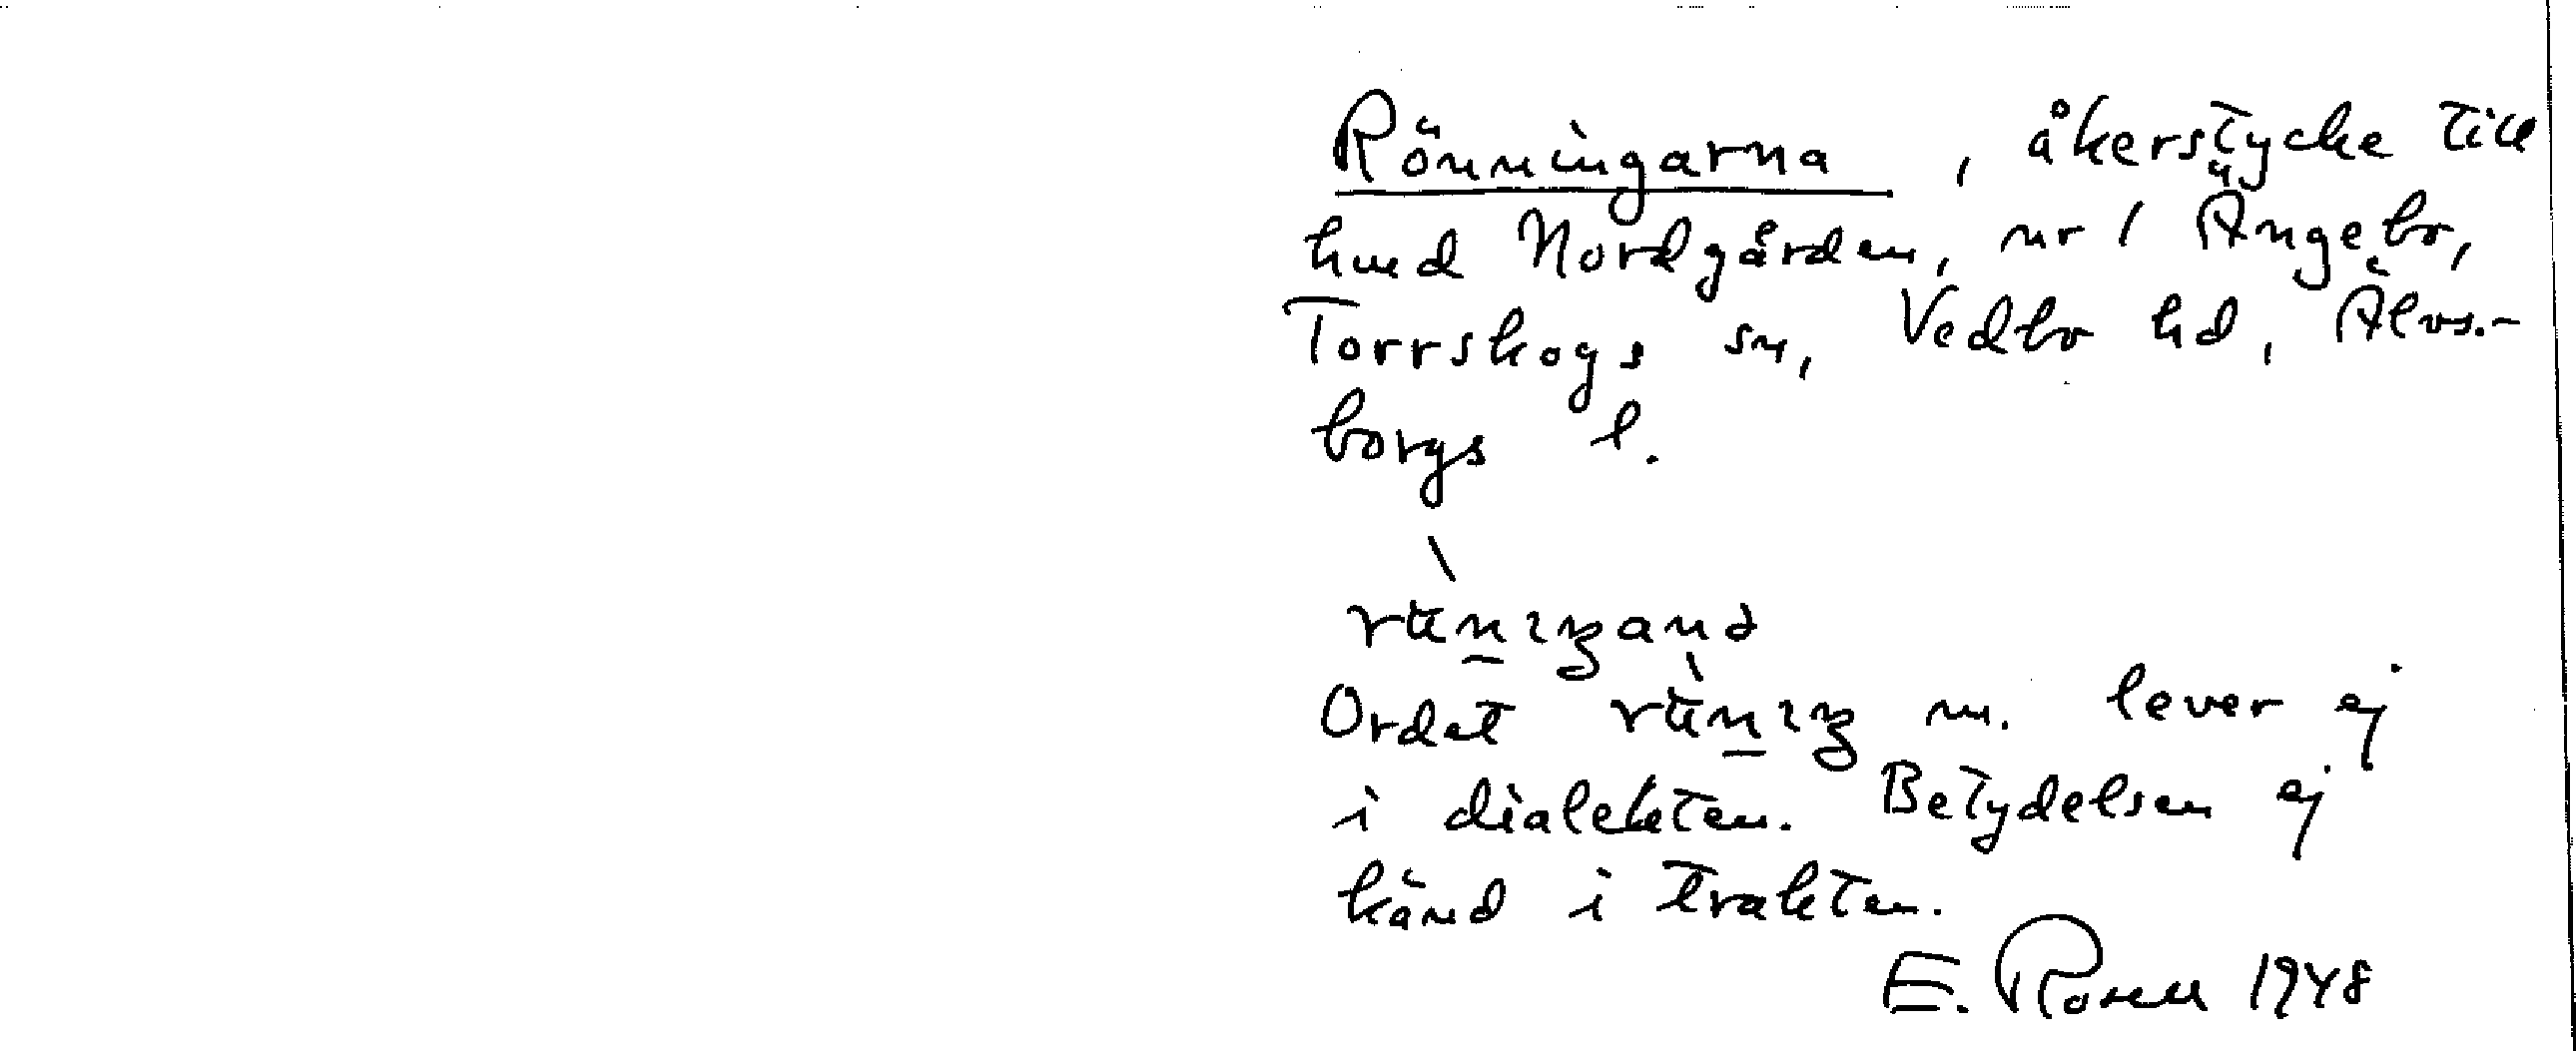 Rönningarna, åkerstycke till
hmd Nordgården, nr 1 Ängebo,
Torrskogs sn, Vedbo hd, Älvs-
borgs l.
Ordet m. lever ej
i dialekten. Betydelsen ej
känd i trakten.
E. Rosell 1948